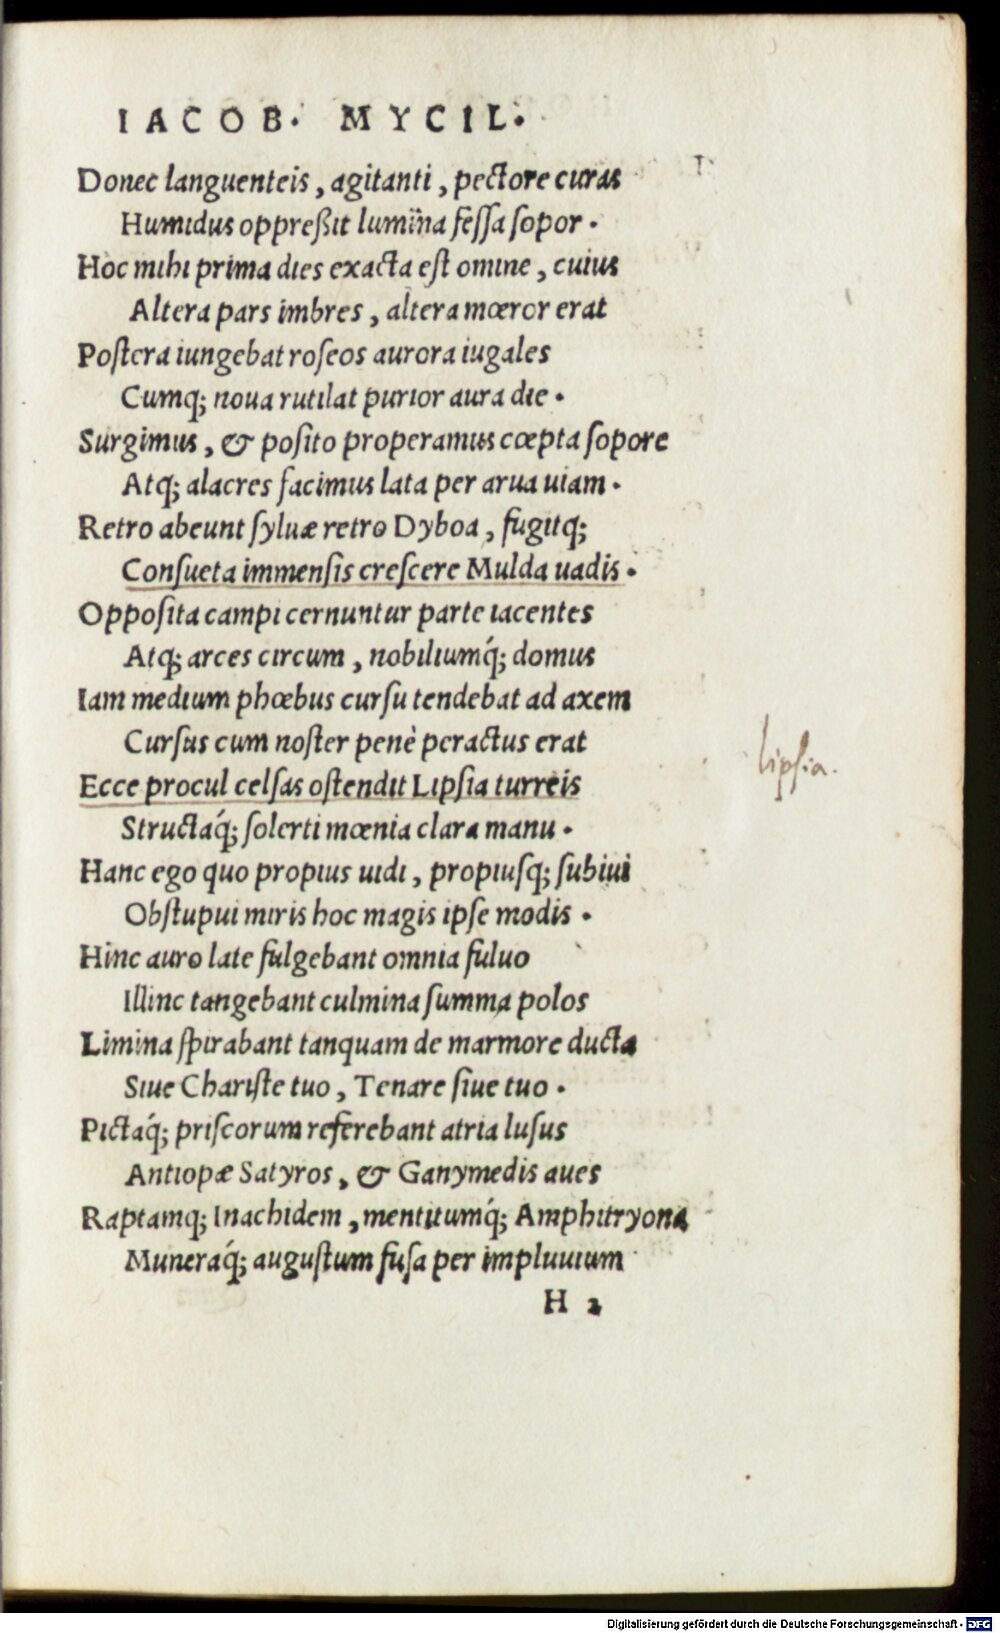 IACOB. MYCIL.
Donec languenteis, agitanti, pectore curas
Humidus oppreßit lumina feſſa ſopor.
Hoc mihi prima dies exacta eſt omine, cuius
Altera pars imbres, altera mœror erat
Poſtera iungebat roſeos aurora iugales
Cumq; noua rutilat purior aura die.
Surgimus, & poſito properamus cœpta ſopore
Atq; alacres facimus lata per arua uiam.
Retro abeunt ſyluæ retro Dyboa, fugitq;
Conſueta immenſis creſcere Mulda uadis.
Oppoſita campi cernuntur parte iacentes
Atq; arces circum, nobiliumq́; domus
Iam medium phœbus curſu tendebat ad axem
Curſus cum noſter penè peractus erat
Ecce procul celſas oſtendit Lipſia turreis
Structaq́; ſolerti mœnia clara manu.
lipſia.
Hanc ego quo propius uidi, propiuſq; ſubiui
Obſtupui miris hoc magis ipſe modis.
Hinc auro late fulgebant omnia fuluo
Illinc tangebant culmina ſumma polos
Limina ſpirabant tanquam de marmore ducta
Siue Chariſte tuo, Tenare ſiue tuo.
Pictaq́; priſcorum referebant atria luſus
Antiopæ Satyros, & Ganymedis aues
Raptamq; Inachidem, mentitumq́; Amphitryona
Muneraq́; auguſtum fuſa per impluuium
H 2
Digitalisierung gefördert durch die Deutsche Forschungsgemeinschaft - DFG